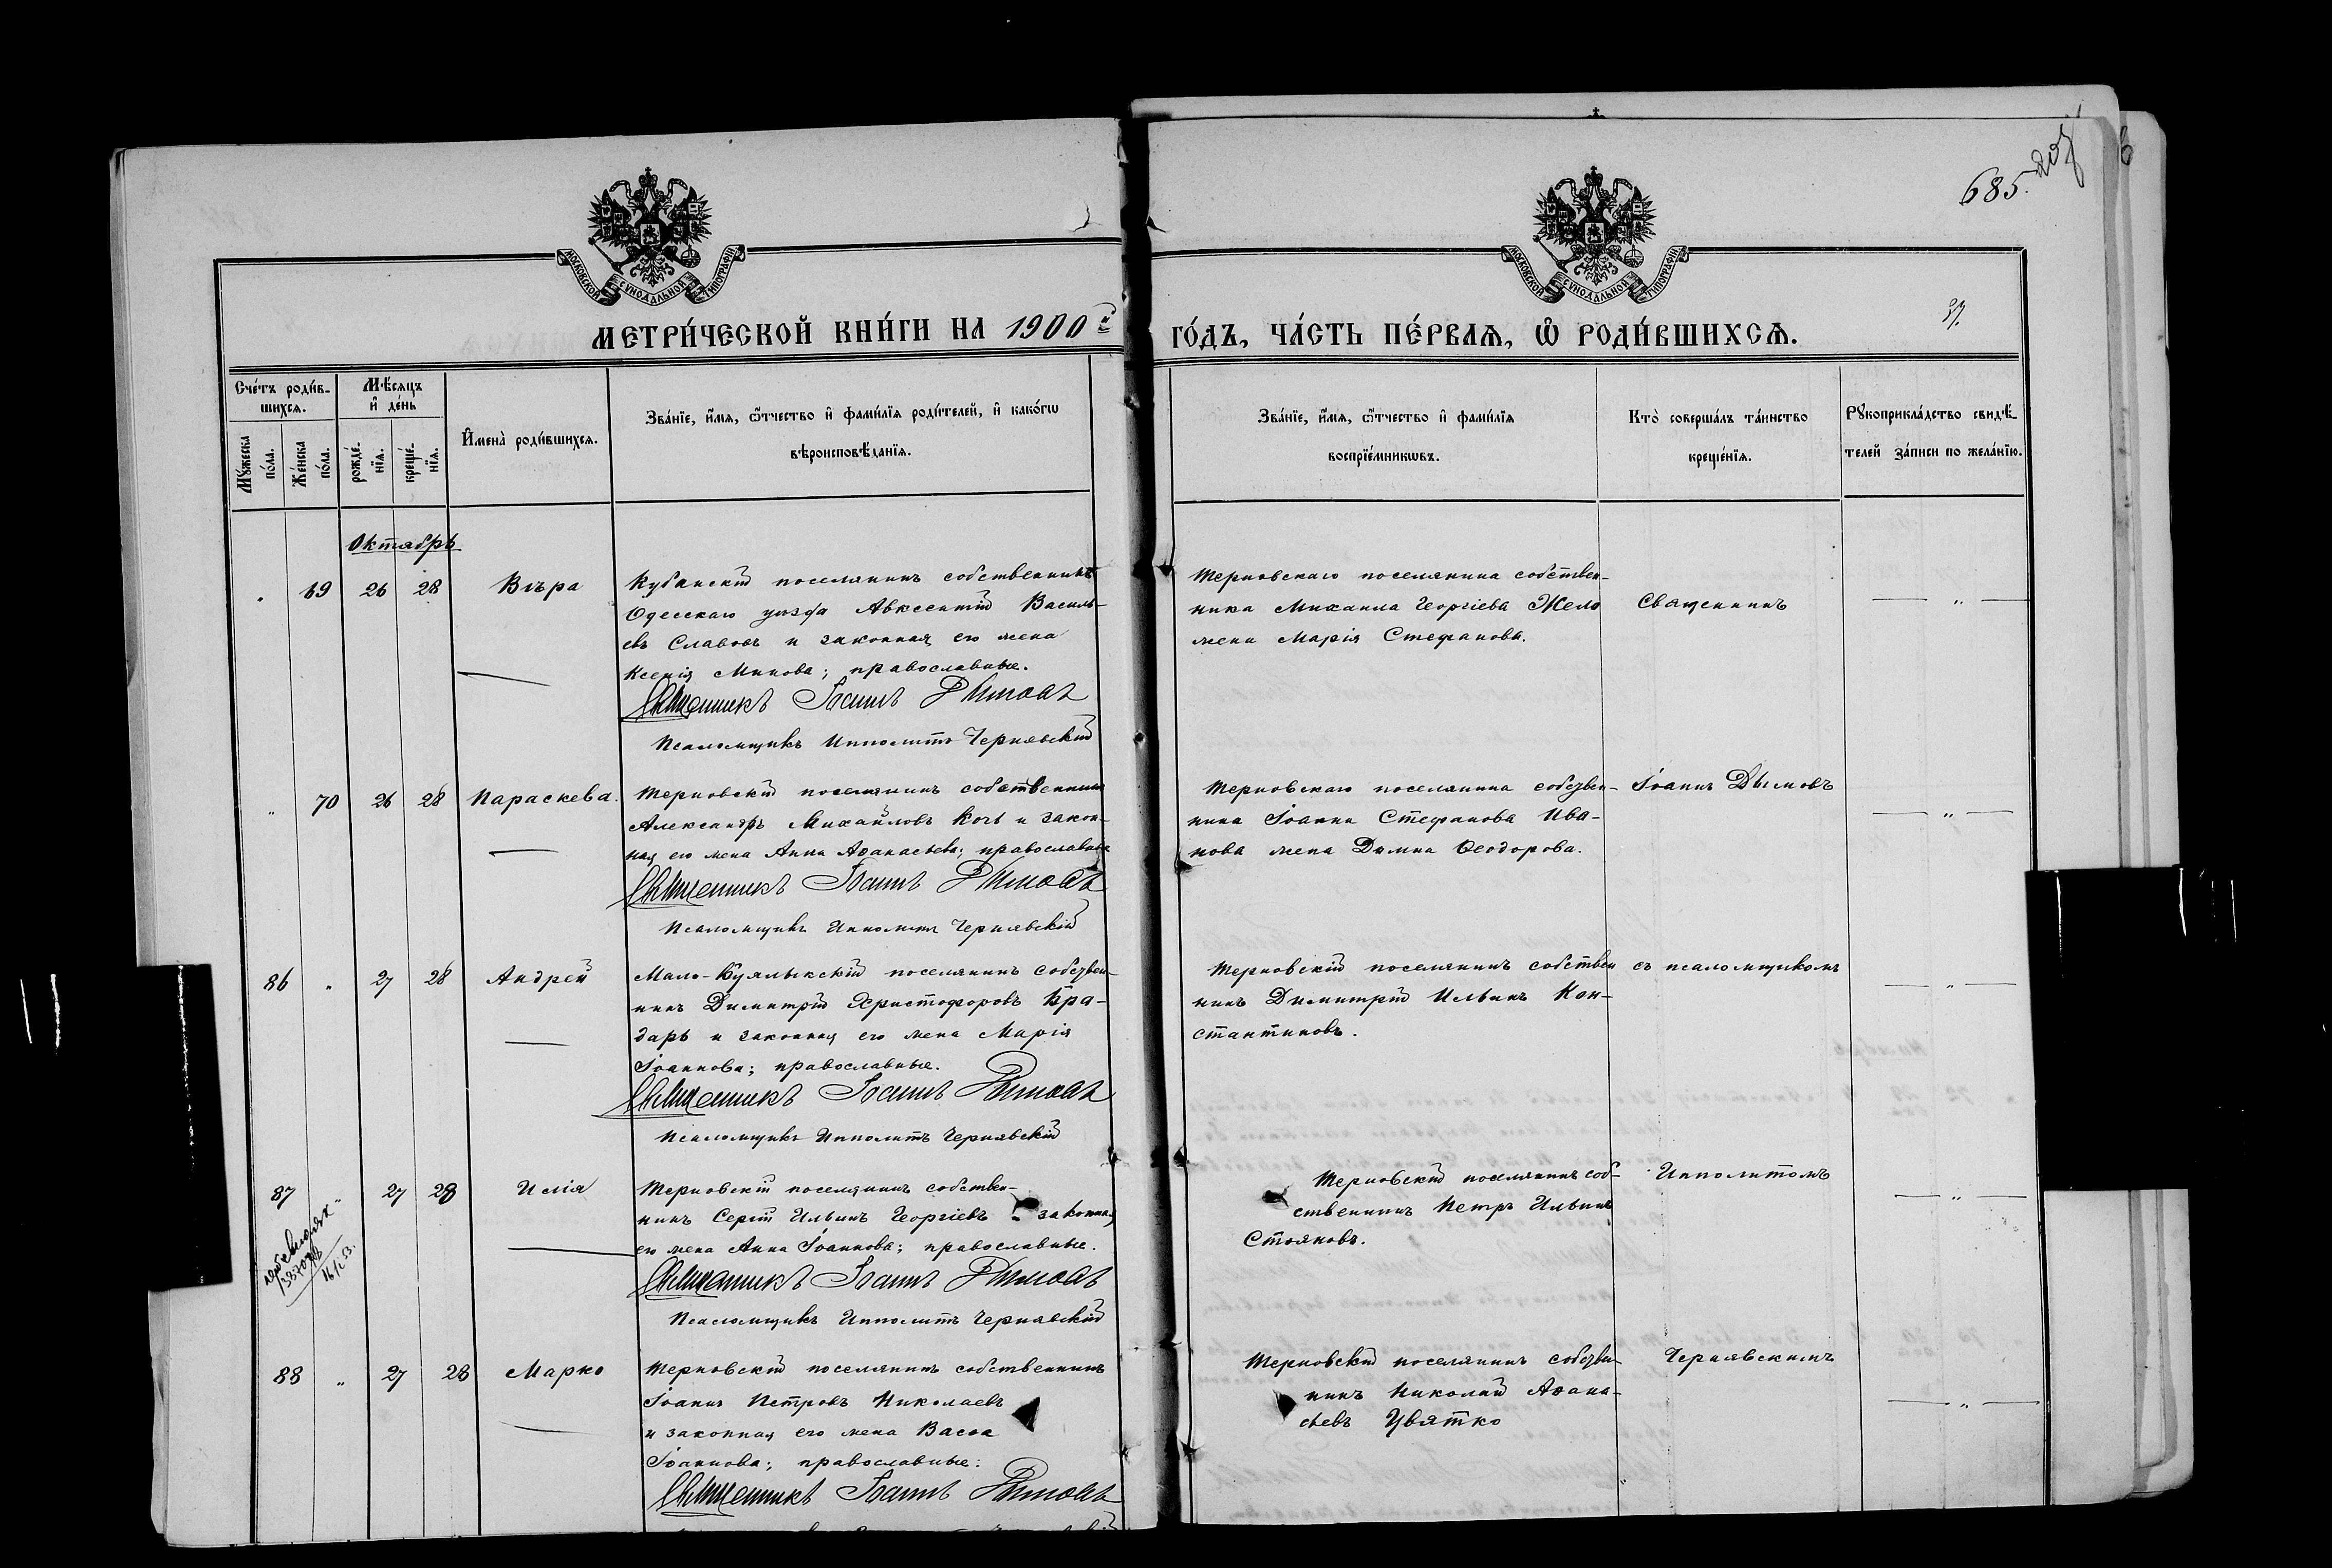 685.
МОСКОВСКОЙ СѴНОДАЛЬНОЙ ТИПОГРАФІИ
МОСКОВСКОЙ СѴНОДАЛЬНОЙ ТИПОГРАФІИ
МЕТРИ́ЧЕСКОЙ КНИ́ГИ НА 1900й ГО́ДЪ, ЧА́СТЬ ПЕ́РВАѦ, Ѡ҆ РОДИ́ВШИХСѦ.
Сче́тъ роди́в-
шихсѧ.
Мꙋжеска по́ла.
Же́нска по́ла.
Мѣ́сѧцъ
и҆ де́нь
рожде́-
нїѧ.
креще́-
нїѧ.
И҆мена̀ роди́вшихсѧ.
Зва́нїе, и҆́мѧ, ѻ҆́тчество и҆ фами́лїѧ роди́телей, и҆ како́гѡ
вѣроисповѣ́данїѧ.
Зва́нїе, и҆́мѧ, ѻ҆́тчество и҆ фами́лїѧ
воспрїе́мникѡвъ.
Кто̀ соверша́лъ та́инство
креще́нїѧ.
Рꙋкоприкла́дство свидѣ́-
телей за́писи по жела́нїю.
Октябрь
69 26 28 Вѣра
Кубанскій поселянинъ собственникъ
Одесскаго уѣзда Авксентій Василь-
евъ Славовъ и законная его жена
Ксенія Минова; православные.
Священникъ Іоаннъ Дымовъ
Псаломщикъ Ипполитъ Чернявскій
Терновскаго поселянина собствен-
ника Михаила Георгіева Жело
жена Марія Стефанова.
Священникъ
" 70 26 28 Параскева.
Терновскій поселянинъ собственникъ
Александръ Михайловъ Кочъ и закон-
ная его жена Анна Аѳанасьева; православные
Священникъ Іоаннъ Дымовъ
Псаломщикъ Ипполитъ Чернявскій
Терновскаго поселянина собствен-
ника Іоанна Стефанова Ива-
нова жена Домна Ѳеодорова.
Іоаннъ Дымовъ
86 " 27 28 Андрей
Мало-Буялыкскій поселянинъ собствен-
никъ Димитрій Христофоровъ Бра-
дарь и законная его жена Марія
Іоаннова; православные.
Священникъ Іоаннъ Дымовъ
Псаломщикъ Ипполитъ Чернявскій
Терновскій поселянинъ собствен
никъ Димитрій Ильинъ Кон-
стантиновъ.
съ псаломщикомъ
87 " 27 28 Илія
Терновскій поселянинъ собствен-
никъ Сергій Ильинъ Георгіевъ и законная
его жена Анна Іоаннова; православные.
Священникъ Іоаннъ Дымовъ
Псаломщикъ Ипполитъ Чернявскій
Терновскій поселянинъ соб-
ственникъ Петръ Ильинъ
Стояновъ.
Ипполитомъ
88 " 27 28 Марко
Терновскій поселянинъ собственникъ
Іоаннъ Петровъ Николаевъ
и законная его жена Васса
Іоаннова; православные.
Священникъ Іоаннъ Дымовъ
Терновскій поселянинъ собствен-
никъ Николай Аѳана-
сьевъ Цвятко
Чернявскимъ